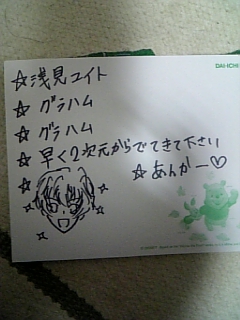 DAI-ICHI
☆浅見ユイト
☆グラハム
☆グラハム
☆早く2次元からでてきて下さい
☆あんがー♡